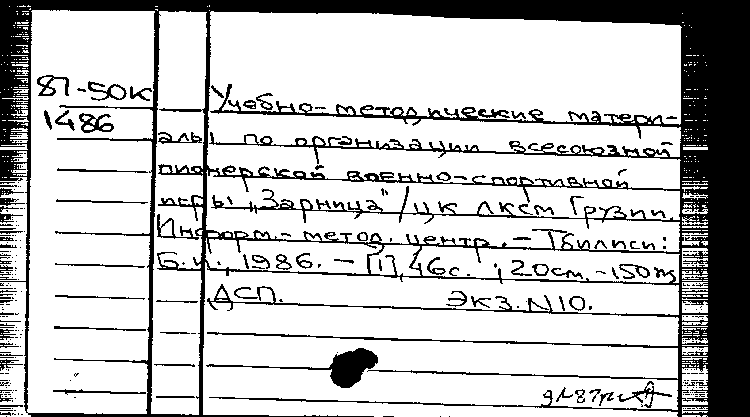 87-50К
1486
Учебно-методические матери-
алы по организации всесоюзной
пионерской военно-спортивной
игры „Зарница“/ЦК ЛКСМ Грузии.
Информ.-метод. центр. – Тбилиси:
Б.и., 1986. – [1], 46с. ; 20см. – 150
ДСП. Экз. N10.